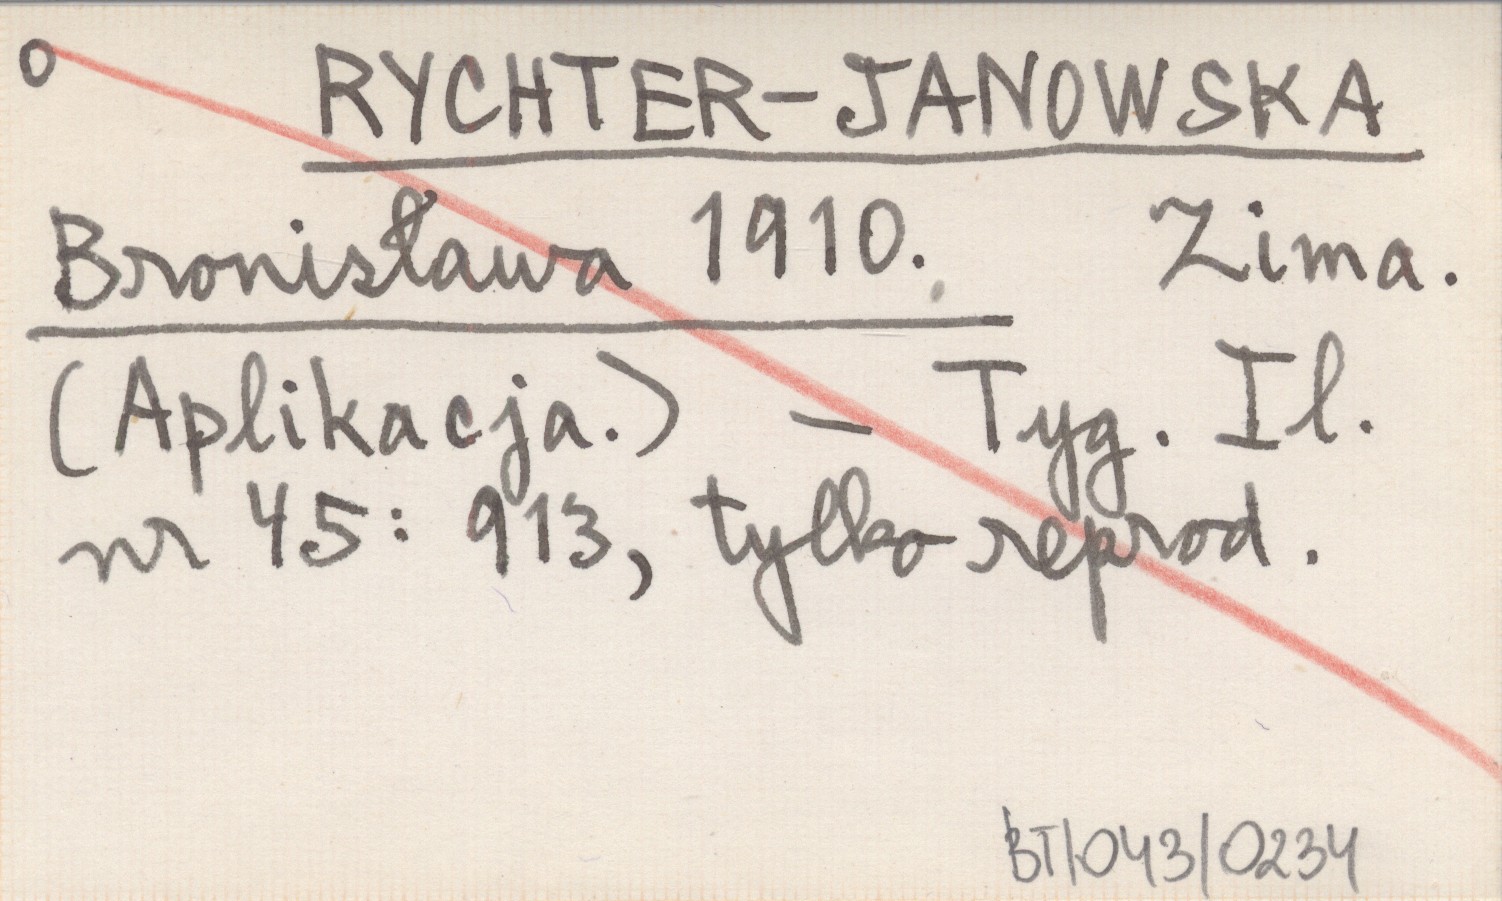 o RYCHTER-JANOWSKA
Bronisława 1910. Zima.
(Aplikacja.) – Tyg. Il.
nr 45: 913, tylko reprod.
BT/043/0234